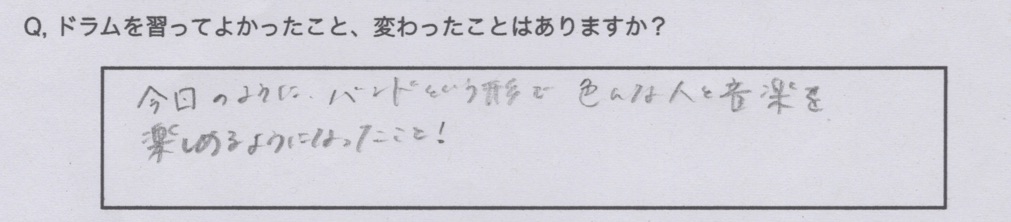 Q, ドラムを習ってよかったこと、変わったことはありますか？
今日のように、バンドという形で 色んな人と音楽を
楽しめるようになったこと！